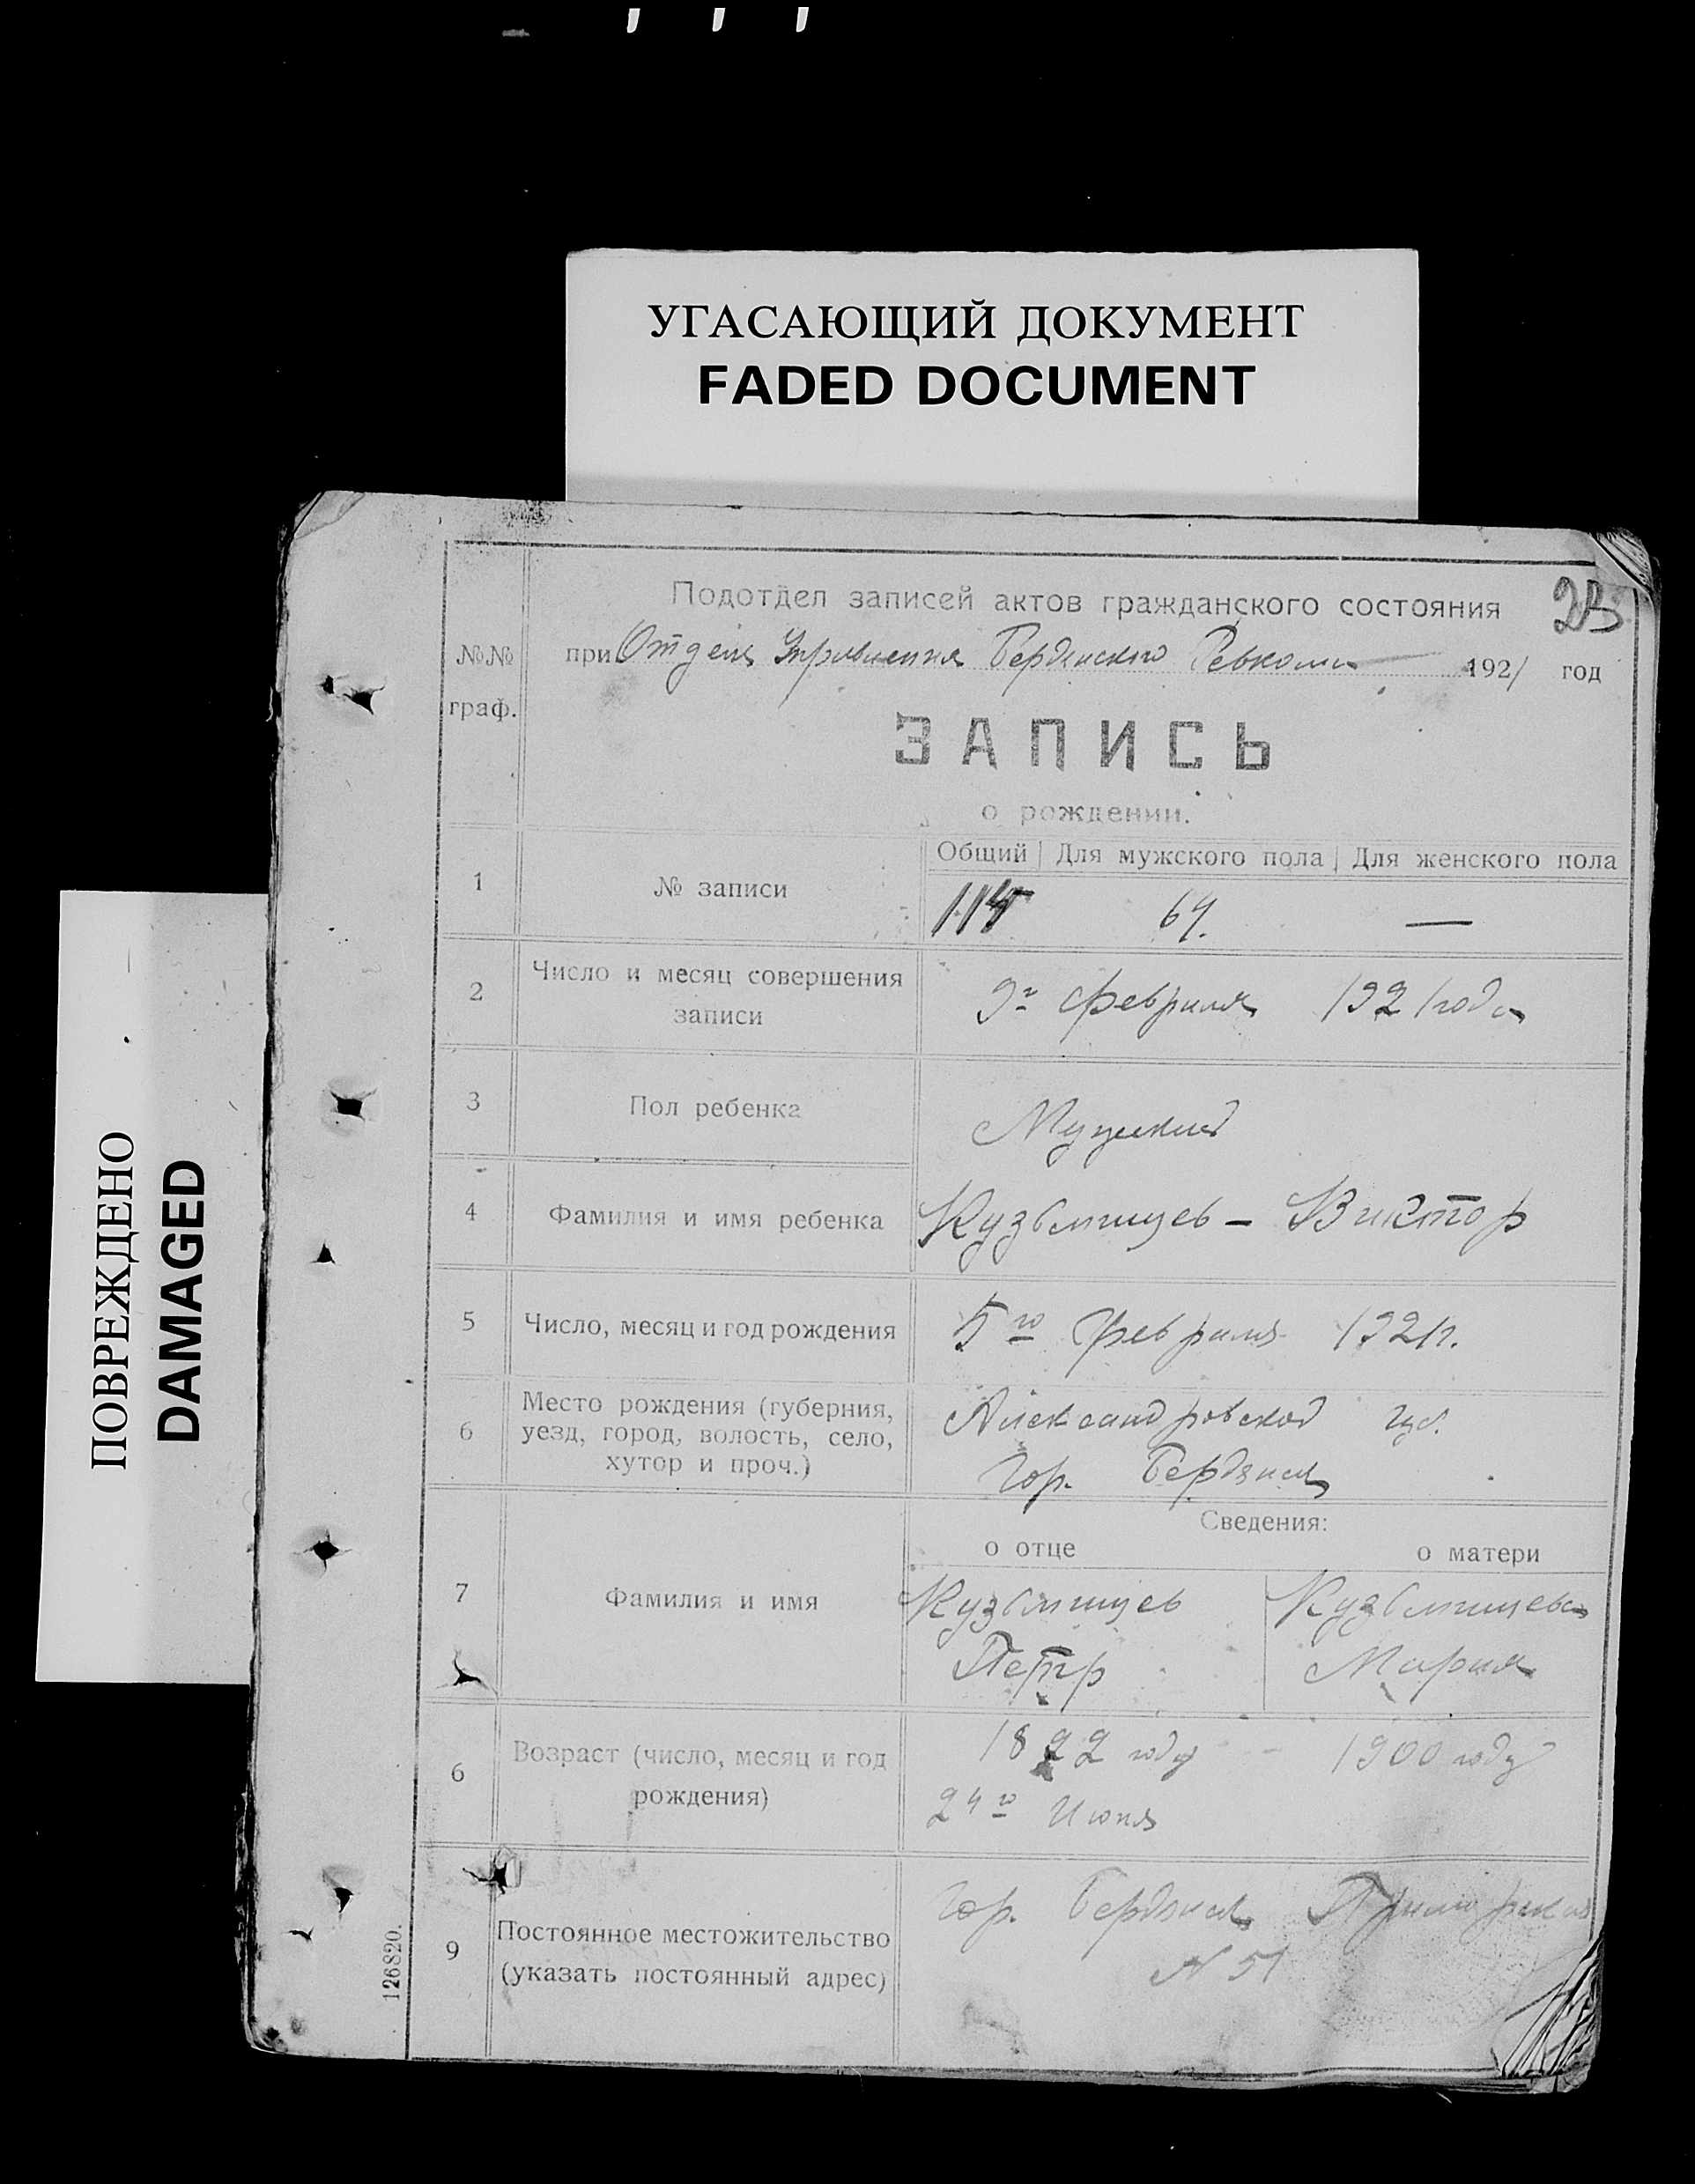 УГАСАЮЩИЙ ДОКУМЕНТ
FADED DOCUMENT
ПОВРЕЖДЕНО
DAMAGED
Подотдел записей актов гражданского состояния
№№ граф.
при Отделе Управления Бердянского Ревкома 1921 год
ЗАПИСЬ
о рождении.
Общий Для мужского пола Для женского пола
1 № записи
115 64. —
2 Число и месяц совершения
записи
9го Февраля 1921 года
3 Пол ребенка
Мужской
4 Фамилия и имя ребенка Кузьмищев - Виктор
5 Число, месяц и год рождения 5го Февраля 1921г.
6 Место рождения (губерния,
уезд, город, волость, село,
хутор и проч.)
Александровской губ.
Гор. Бердянск
Сведения:
о отце о матери
7 Фамилия и имя
Кузьмищев Кузьмищева
Петр Мария
6 Возраст (число, месяц и год
рождения)
году - 1900 году
24го Июня
9 Постоянное местожительство
(указать постоянный адрес)
Гор. Бердянск Приморская
N 51
126820.